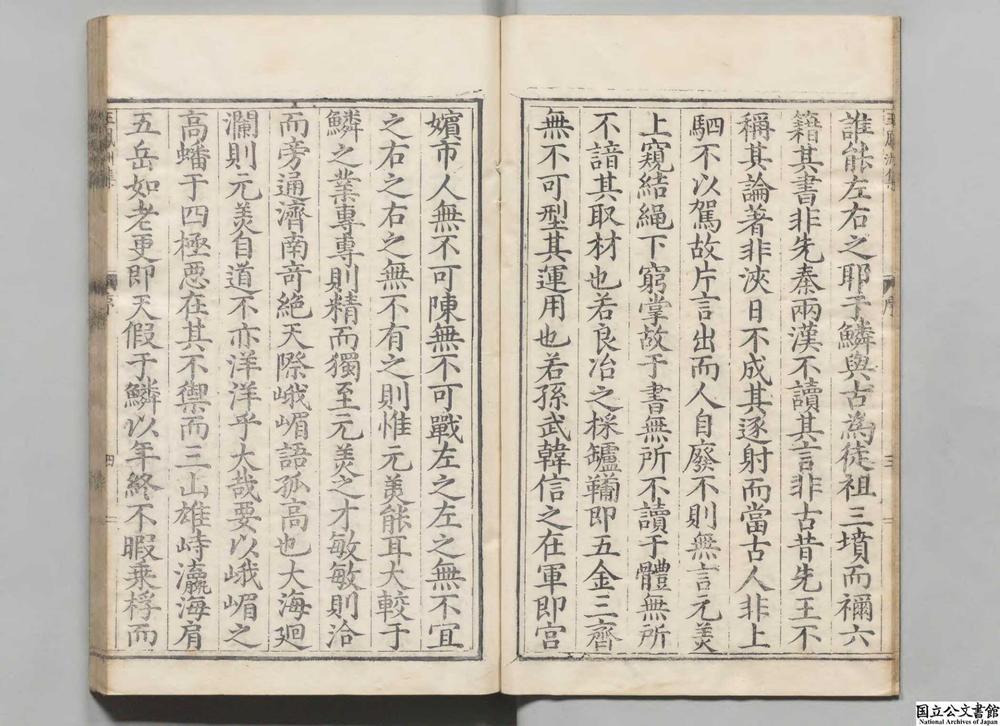 誰能左右之耶于鱗與古為徒祖三墳而禰六
籍其書非先秦兩漢不讀其言非古昔先王不
稱其論著非浹日不成其逐射而當古人非上
駟不以駕故片言出而人自廢不則無言元美
上窺結繩下窮掌故于書無所不讀于體無所
不諳其取材也若良冶之採鑪鞴即五金三齊
無不可型其運用也若孫武韓信之在軍即宮
嬪市人無不可陳無不可戰左之左之無不宜
之右之右之無不有之則惟元美能耳大較于
鱗之業專專則精而獨至元美之才敏敏則洽
而旁通濟南奇絕天際峨嵋語孤高也大海廻
瀾則元美自道不亦洋洋乎大哉要以峨嵋之
高蟠于四極惡在其不禦而三山雄峙瀛海肩
五岳如老更即天假于鱗以年終不暇乘桴而
序
三
序
四
国立公文書館
National Archives of Japan